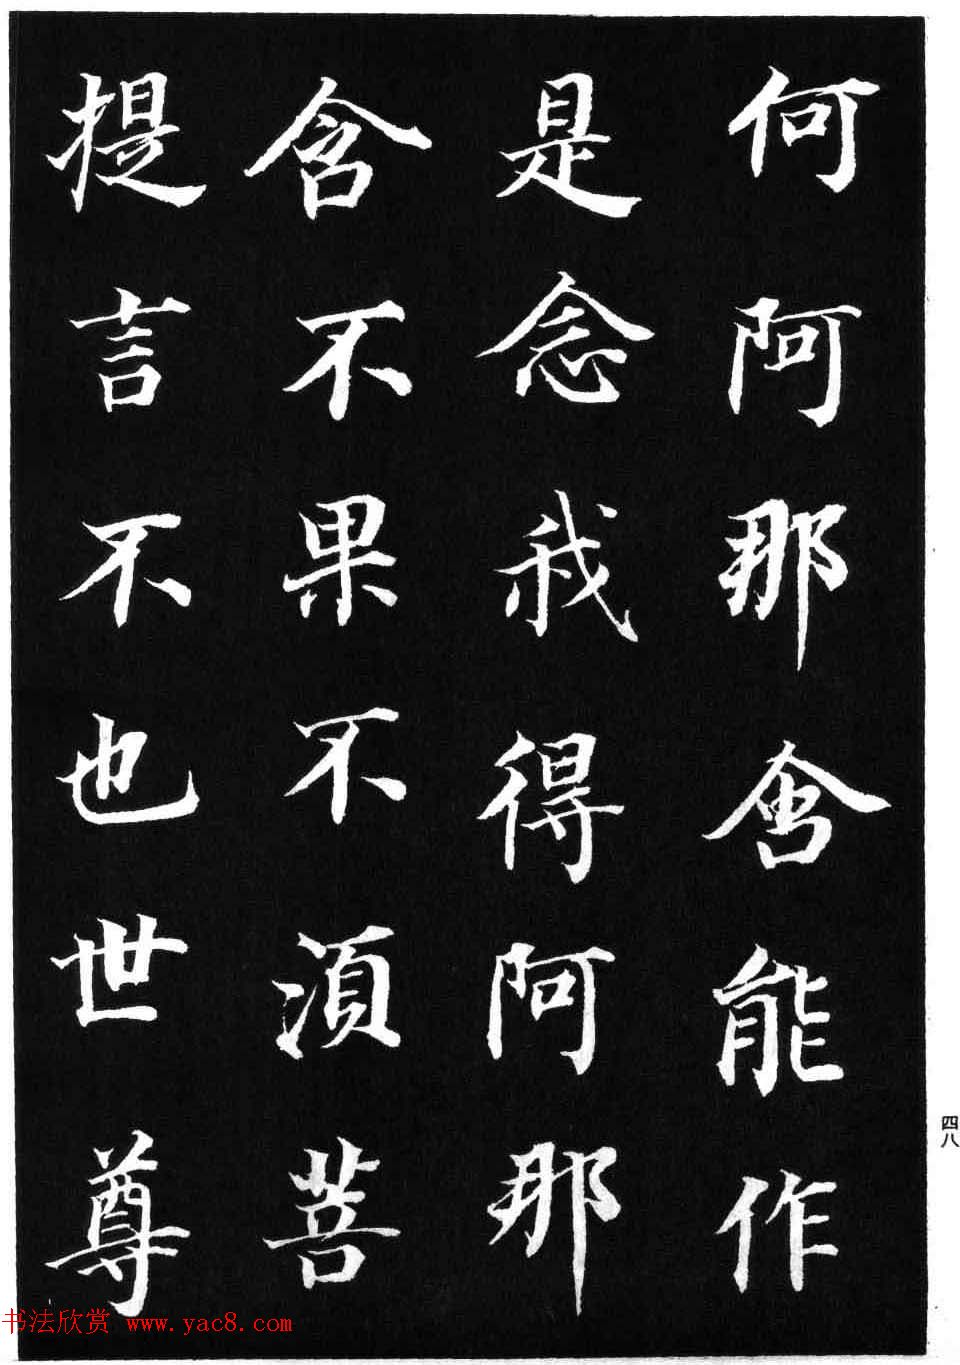 何阿那含能作
是念我得阿那
含不果不須菩
提言不也世尊
四八
书法欣赏 www.yac8.com